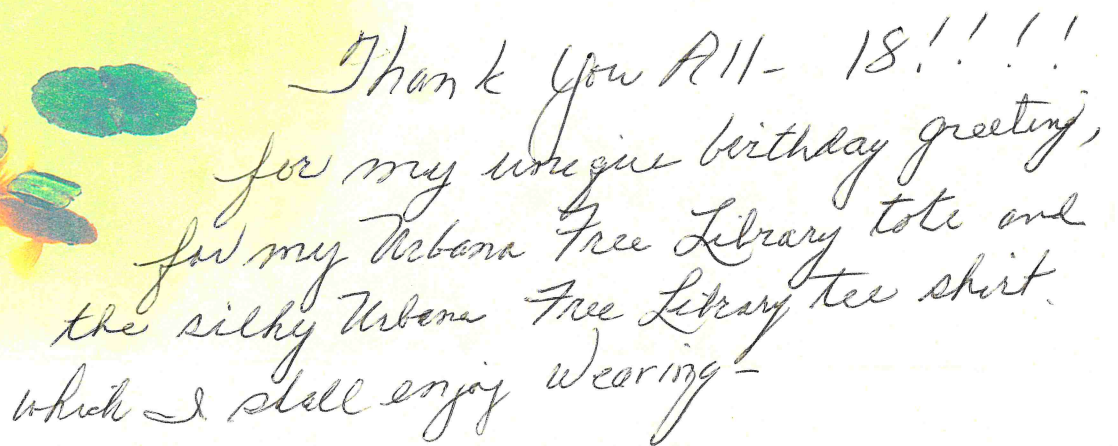 Thank You All- 18!!!!
for my unique birthday greeting,
for my Urbana Free Library tote and
the silky Urbana Free Library tee shirt.
which I shall enjoy wearing-